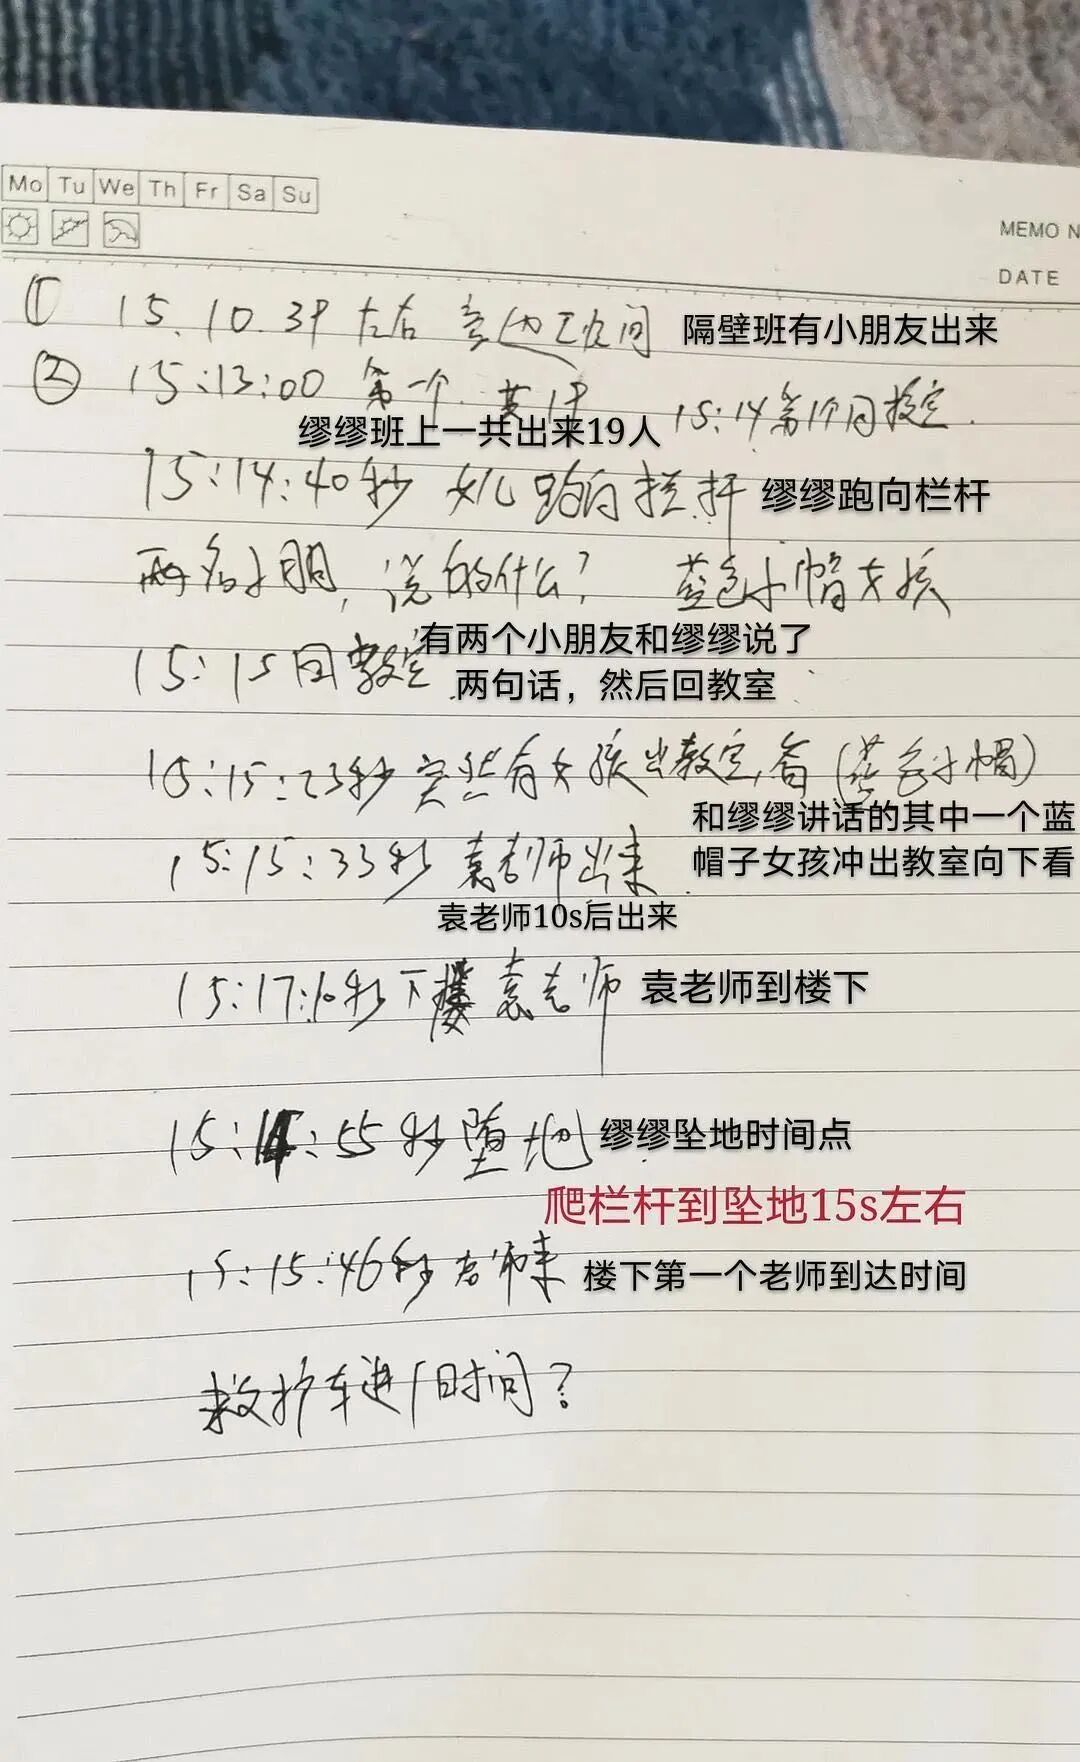 Mo Tu We Th Fr Sa Su
MEMO N
DATE
① 15.10.39 左右 间 隔壁班有小朋友出来
② 15:13:00 第一个 15:14 第1个回教室
缪缪班上一共出来19人
15:14:40秒 女儿跑向栏杆 缪缪跑向栏杆
两名小朋, 说的什么? 蓝色小帽女孩
有两个小朋友和缪缪说了
15:15回教室 两句话，然后回教室
15:15:23秒突然有女孩出教室看(蓝色小帽)
和缪缪讲话的其中一个蓝
15:15:33秒 袁老师出来 帽子女孩冲出教室向下看
袁老师10s后出来
15:17:10秒下楼袁老师 袁老师到楼下
15:14:55秒堕地 缪缪坠地时间点
爬栏杆到坠地15s左右
15:15:46秒老师来 楼下第一个老师到达时间
救护车进 时间?